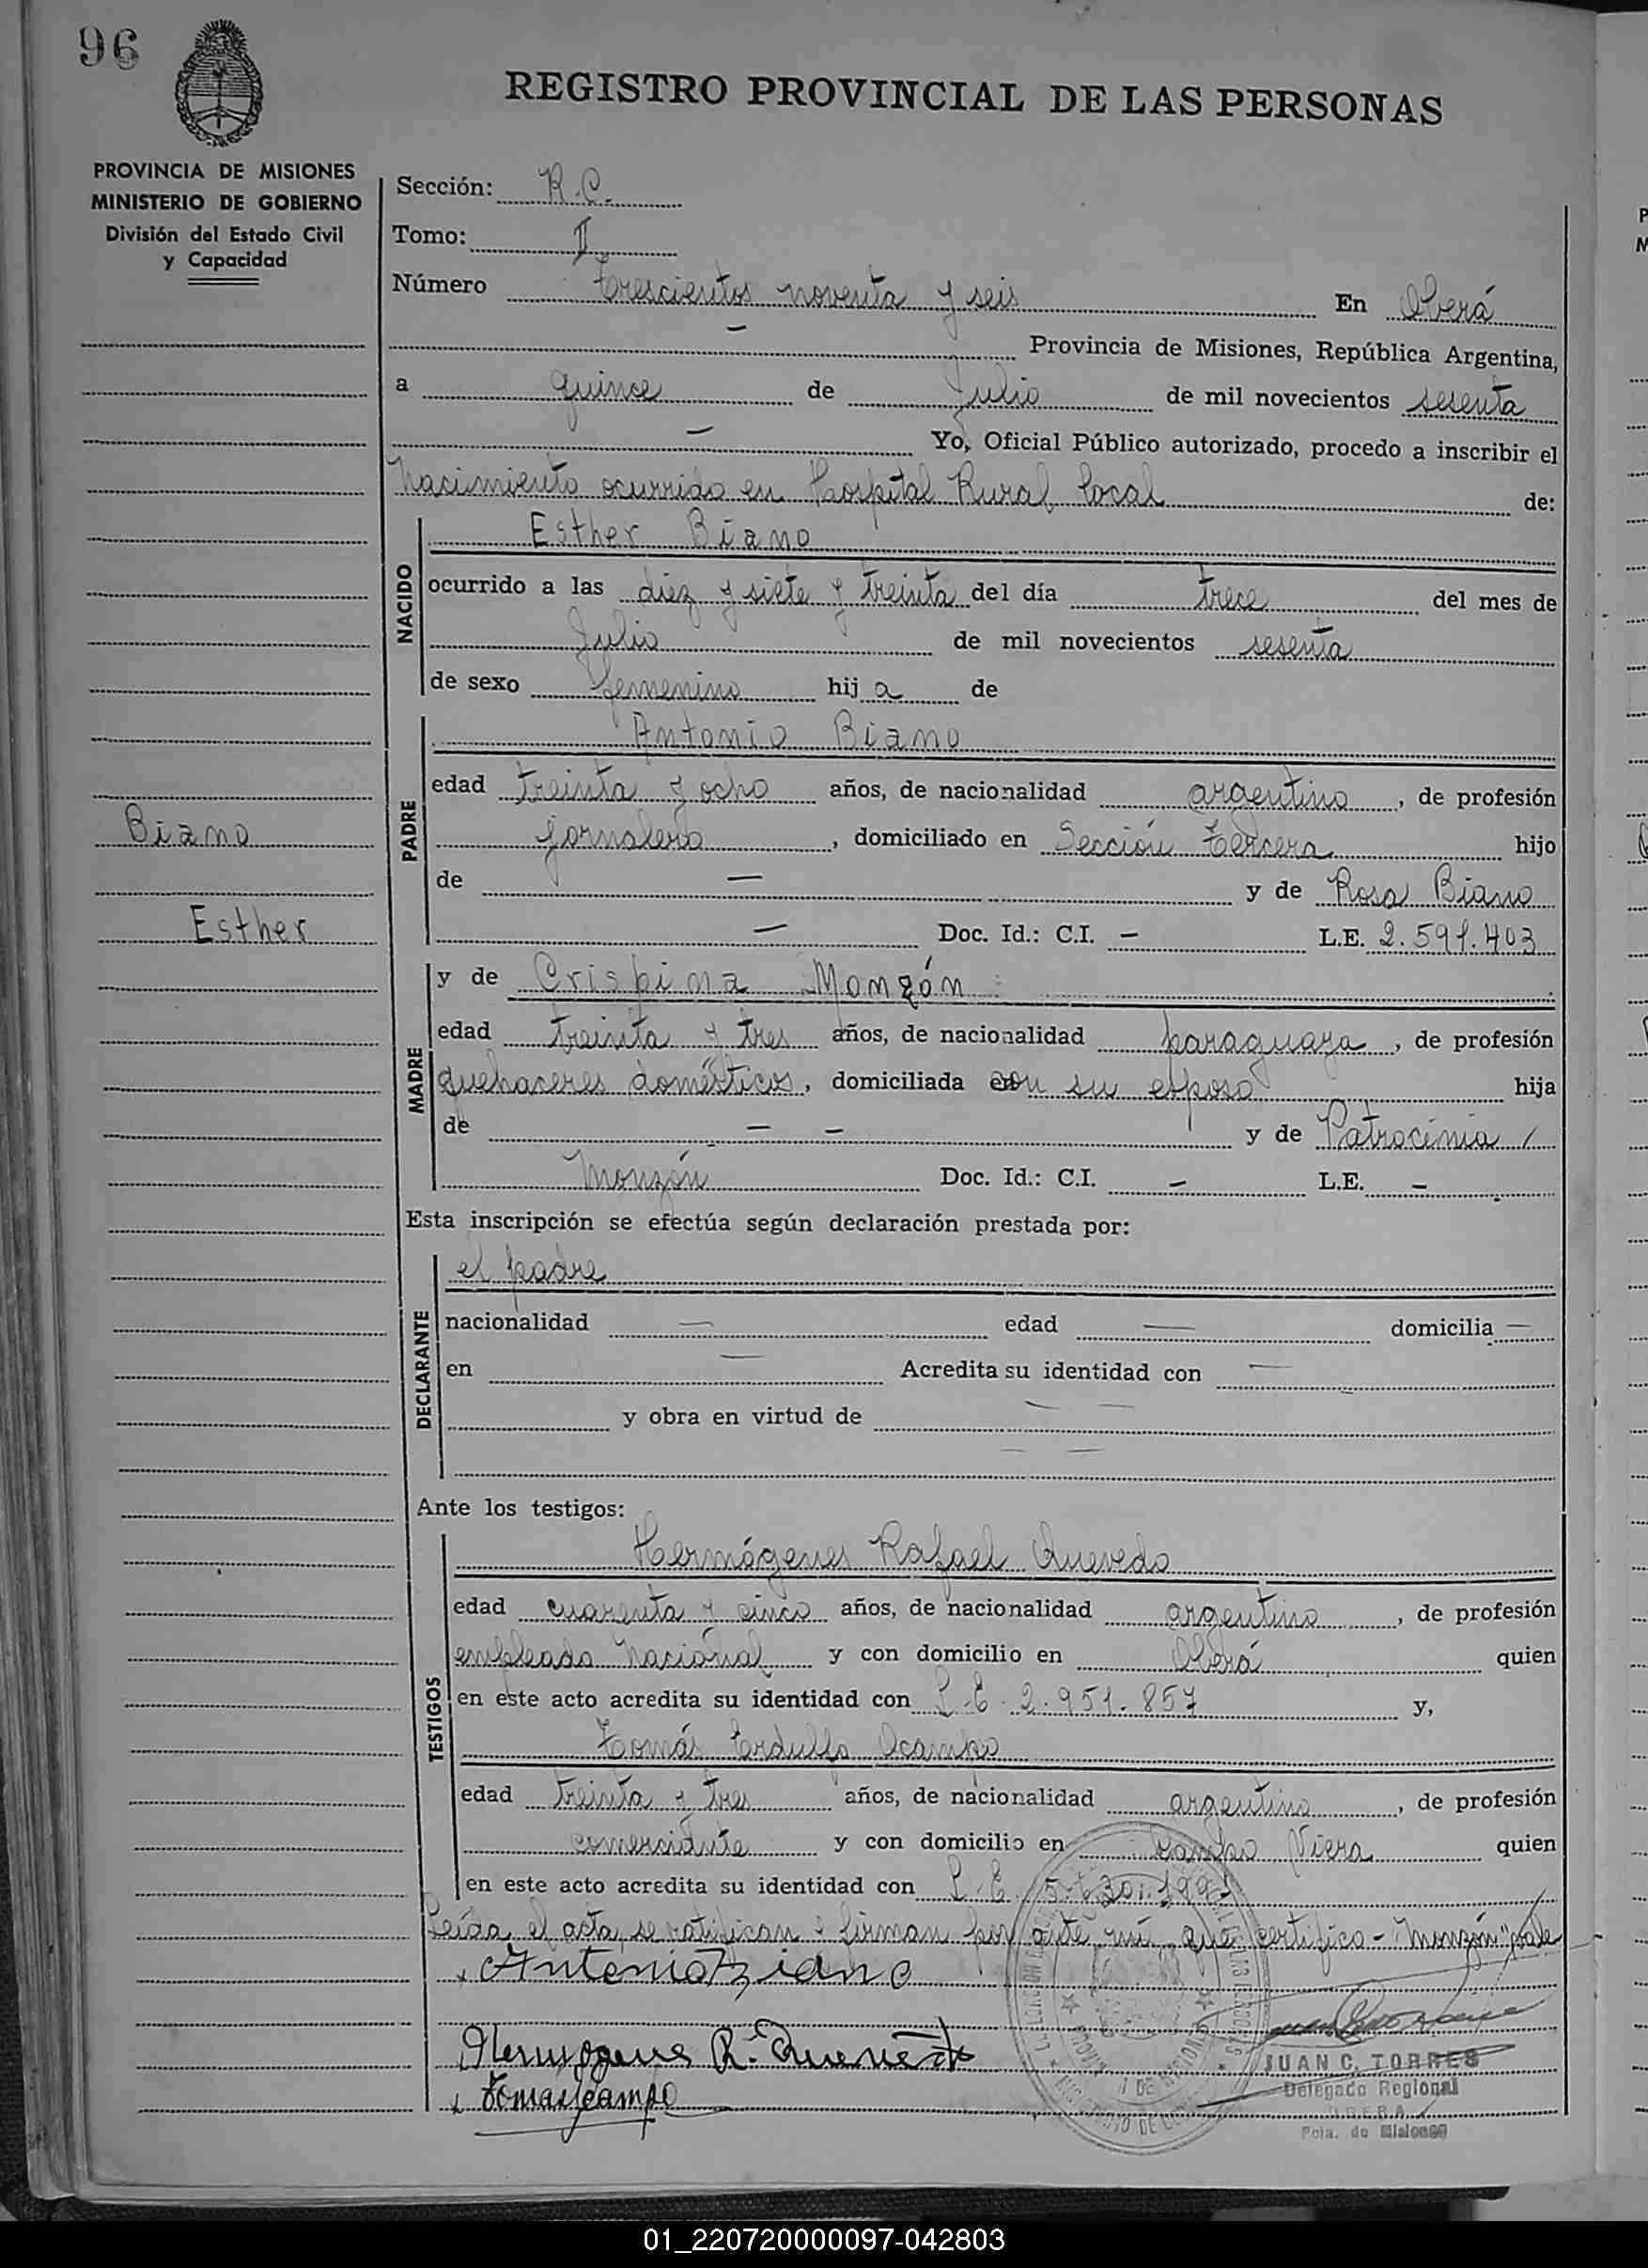 96
REGISTRO PROVINCIAL DE LAS PERSONAS
PROVINCIA DE MISIONES
MINISTERIO DE GOBIERNO
División del Estado Civil
y Capacidad
Sección: R.C.
Tomo: II
Número trescientos noventa y seis En Oberá
— Provincia de Misiones, República Argentina,
a quince de Julio de mil novecientos sesenta
— Yo, Oficial Público autorizado, procedo a inscribir el
Nacimiento ocurrido en Hospital Rural local de:
NACIDO
Esther Biano
ocurrido a las diez y siete y treinta del día trece del mes de
Julio de mil novecientos sesenta
de sexo femenino hija de
PADRE
Antonio Biano
edad treinta y ocho años, de nacionalidad argentino, de profesión
jornalero, domiciliado en Sección tercera hijo
de — y de Rosa Biano
— Doc. Id.: C.I. — L.E. 2.591.403
Biano
Esther
MADRE
y de Crispina Monzón
edad treinta y tres años, de nacionalidad paraguaya, de profesión
quehaceres domésticos, domiciliada con su esposo hija
de — — y de Patrocinia /
Monzón Doc. Id.: C.I. — L.E. —
Esta inscripción se efectúa según declaración prestada por:
DECLARANTE
el padre
nacionalidad — edad — domicilia —
en — Acredita su identidad con —
y obra en virtud de — —
— —
Ante los testigos:
TESTIGOS
Hermógenes Rafael Quevedo
edad cuarenta y cinco años, de nacionalidad argentino, de profesión
empleado Nacional y con domicilio en Oberá quien
en este acto acredita su identidad con L.E. 2.951.857 y,
Tomás Ocampo
edad treinta y tres años, de nacionalidad argentino, de profesión
comerciante y con domicilio en Campo Viera quien
en este acto acredita su identidad con L.E.
Leída el acta, se ratifican i firman por ante mí, que certifico - "Monzón" vale
Antonio Biano
Hermogenes R. Quevedo
Tomas Ocampo
JUAN C. TORRES
Delegado Regional
OBERA
Pcia. de Misiones
01_220720000097-042803